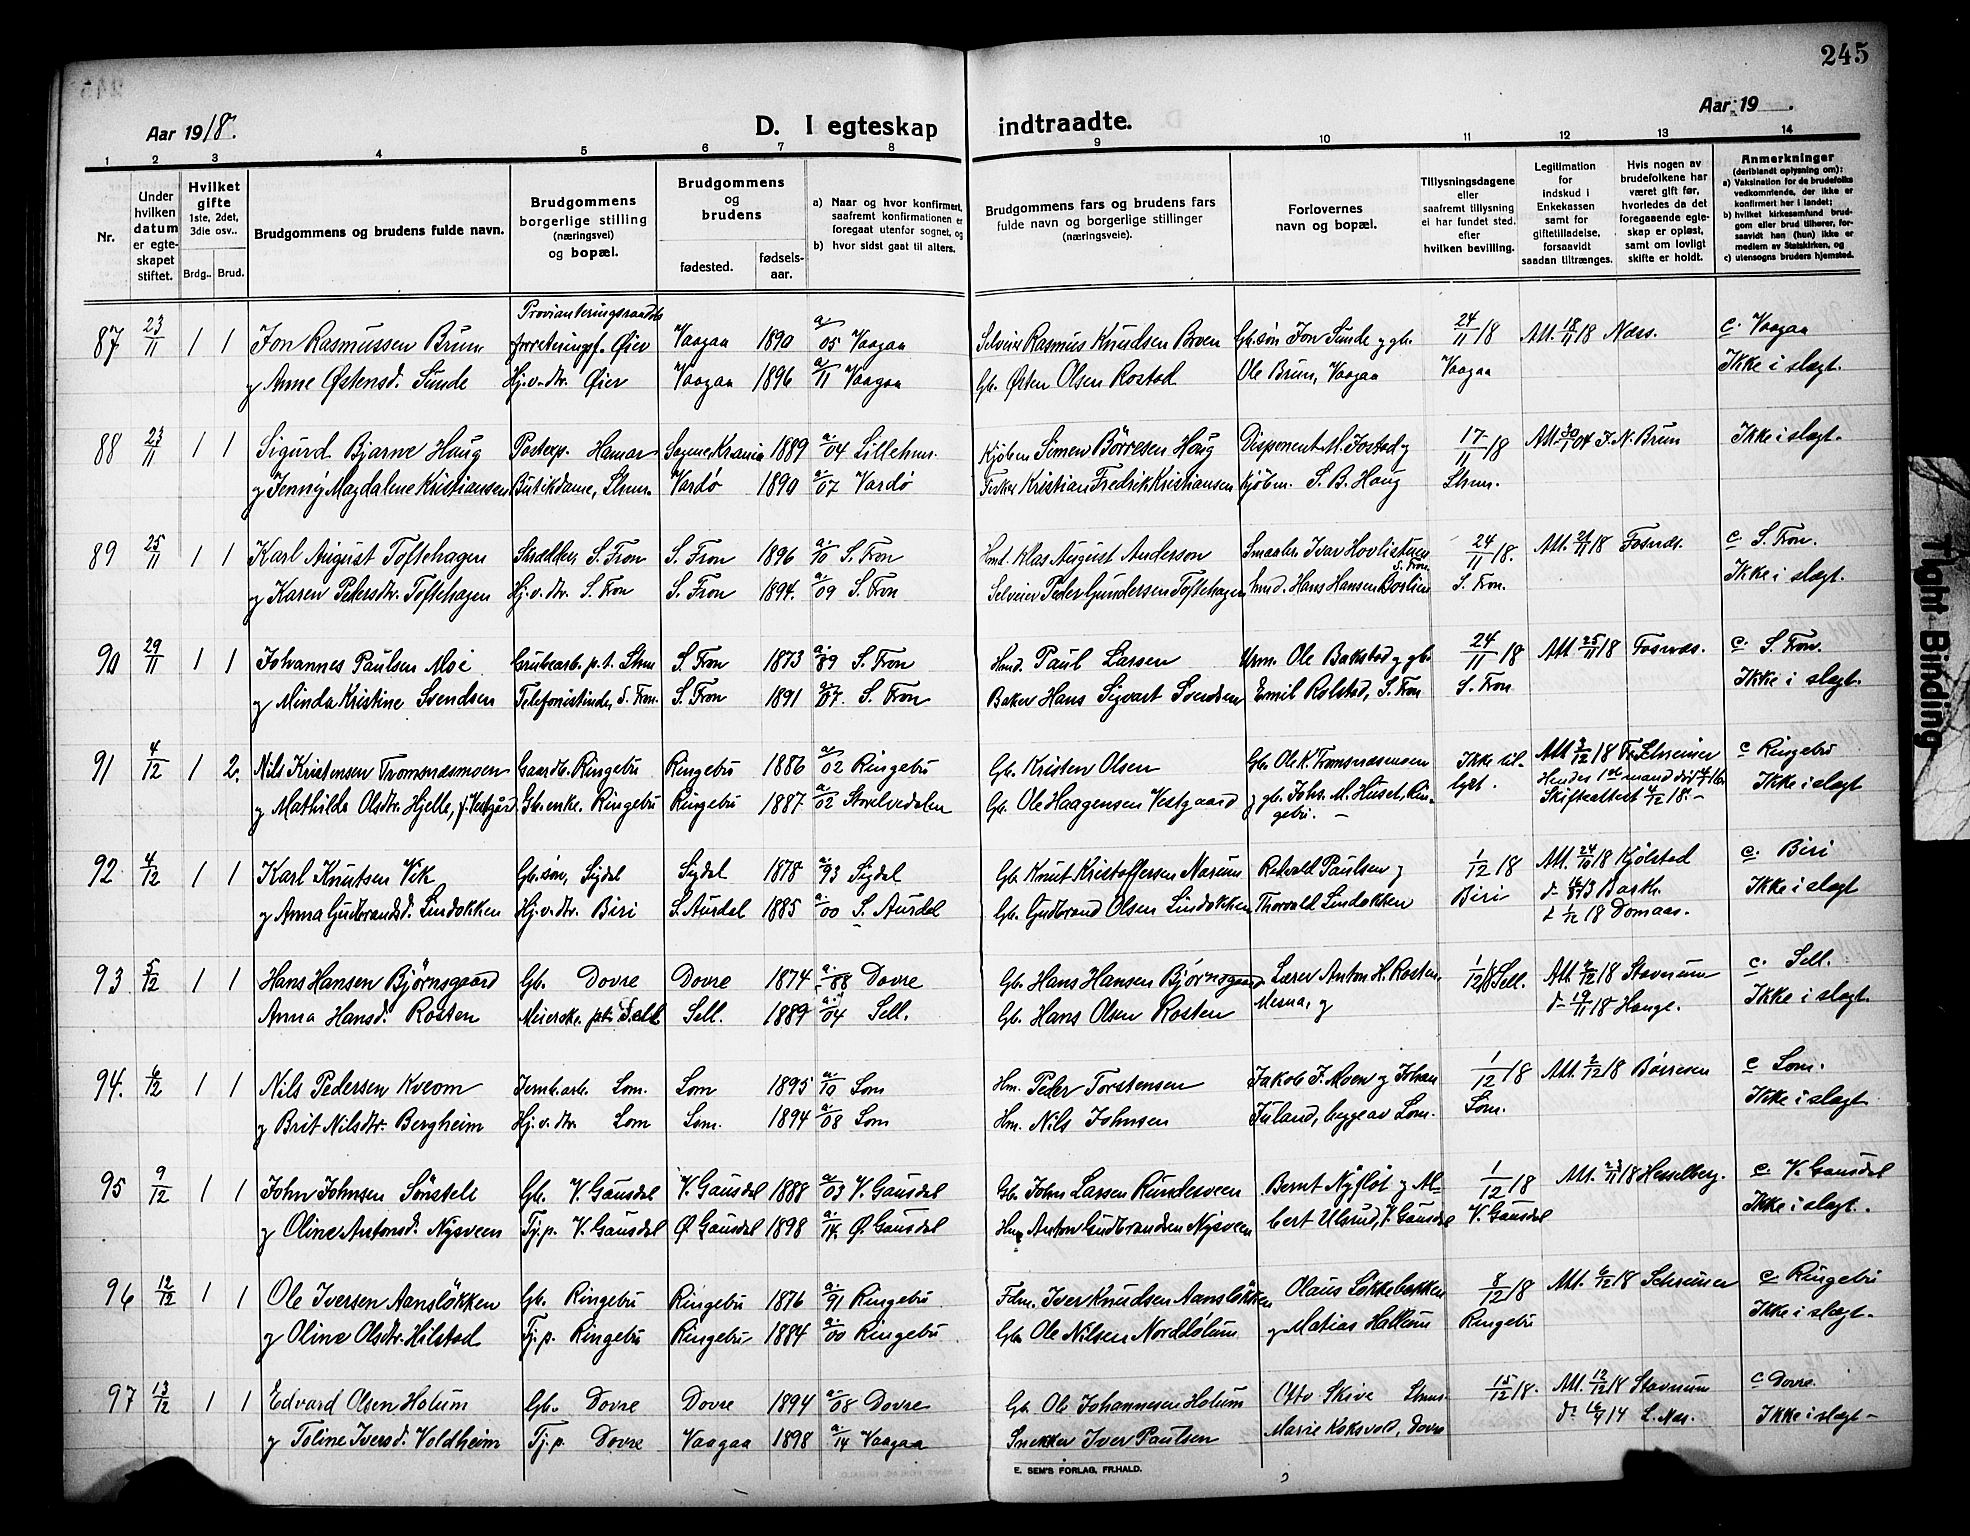 245
Aar 1918.
D. I egteskap indtraadte.
Aar 19 .
1 2 3 4 5 6 7 8 9 10 11 12 13 14
Nr.
Under hvilken datum er egteskapet stiftet.
Hvilket gifte 1ste, 2det, 3die osv..
Brdg.. Brud.
Brudgommens og brudens fulde navn.
Brudgommens borgerlige stilling (næringsvei) og bopæl.
Brudgommens og brudens
fødested. fødselsaar.
a) Naar og hvor konfirmert, saafremt konfirmationen er foregaat utenfor sognet, og
b) hvor sidst gaat til alters.
Brudgommens fars og brudens fars fulde navn og borgerlige stillinger (næringsveie).
Forlovernes navn og bopæl.
Tillysningsdagene eller saafremt tillysning ei har fundet sted. efter hvilken bevilling.
Legitimation for indskud i Enkekassen samt for giftetilladelse, forsaavidt saadan tiltrænges.
Hvis nogen av brudefolkene har været gift før, hvorledes da det foregaaende egteskap er opløst, samt om lovligt skifte er holdt.
Anmerkninger (deriblandt oplysning om):
a) Vaksination for de brudefolks vedkommende, der ikke er konfirmert her i landet;
b) hvilket kirkesamfund brudgom eller brud tilhører, forsaavidt han (hun) ikke er medlem av Statskirken, og
c) utensogns bruders hjemsted.
Provianteringsraadets
87 23/11 1 1 Jon Rasmussen Brun forretningsf. Øier Vaagaa 1890 a/05 Vaagaa Selveier Rasmus Knudsen Bruen Gb.søn Jon Sunde og gb. 24/11 18 Att. 18/11 18 Næss. c. Vaagaa
og Anne Østensd. Sunde Hj.v.dtr. Øier Vaagaa 1896 a/11 Vaagaa Gb. Østen Olsen Rostad Ole Brun, Vaagaa Vaagaa Ikke i slægt.
88 23/11 1 1 Sigurd Bjarne Haug Postexp. Hamar Sagene Krania 1889 a/04 Lillehmr. Kjøbm Simen Børresen Haug Disponent M. Jostad og 17/11 18 Att. 04 J. N. Brun Ikke i slægt.
og Jenny Magdalene Kristiansen Butikdame, Lhmr. Vardø 1890 a/07 Vardø Fisker Kristian Fredrik Kristiansen kjøbm. S. B. Haug Lhmr.
89 25/11 1 1 Karl August Toftehagen Skrædder, S. Fron S. Fron 1896 a/10 S. Fron Hmd. Klas August Anderson Smaabr. Ivar Hovlistuen 24/11 18. Att. 21/11 18 Fosnæs. c. S. Fron.
S. Fron
og Karen Pedersdtr. Toftehagen Hj.v.dtr. S. Fron S. Fron 1894. a/09 S. Fron Selveier Peder Gundersen Toftehagen Smd. Hans Hansen Borlien S. Fron. Ikke i slægt.
90 29/11 1 1 Johannes Paulsen Moe Grubearb. p.t. Lhmr S. Fron 1873 a/89 S. Fron Hmd. Paul Larsen Urm. Ole Bakstad og gb. 24/11 18 Att. 25/11 18 Fosnæs. c. S. Fron.
og Minda Kristine Svendsen Telefonistinde, S. Fron. S. Fron 1891 a/07. S. Fron Baker Hans Sigvart Svendsen Emil Rolstad, S. Fron S. Fron Ikke i slægt.
91 4/12 1 2. Nils Kristensen Tromsnæsmoen Gaardb. Ringebu Ringebu 1886 a/02 Ringebu Gb. Kristen Olsen Gb. Ole K. Tromsnæsmoen Ikke til- Att. 3/12 18 Fr. Schreiner c Ringebu
Hendes 1ste mand død
og Mathilde Olsdtr. Hjelle, f. Vestgård Gb.enke. Ringebu Ringebu 1887. a/02 Storelvedalen Gb. Ole Haagensen Vestgaard og gb. Johs. M. Huset, Rin- lyst. Skifteattest 4/12 18.- Ikke i slægt
gebu. -
92. 4/12 1 1 Karl Knutsen Vik Gb.søn, Sigdal Sigdal 1878 a/93 Sigdal Gb. Knut Kristoffersen Narum Retvald Paulsen og 1/12 18 Att. 24/10 18 Kjølstad c. Biri
og Anna Gudbrandsd. Lindokken Hj.v.dtr. Biri S. Aurdal 1885 a/00 S. Aurdal Gb. Gudbrand Olsen Lindokken Thorvald Lindokken Biri d- Barth. Ikke i slægt
1/12 18 Domaas.
93 5/12 1 1 Hans Hansen Bjørnsgaard Gb. Dovre Dovre 1874 a/88 Dovre Gb. Hans Hansen Bjørnsgaard Lærer Anton H. Rosten, 1/12 18 Sell. Att. 2/12 18 Stavnum c. Sell.
Anna Hansd. Rosten Meierske. p.t. Sell Sell. 1889 a/04 Sell. Gb. Hans Olsen Rosten Mesna, og d- 19/11 18 Hauge. Ikke i slægt.
94. 6/12 1 1 Nils Pedersen Kveom Jernb.arb. Lom. Lom 1895 a/10 Lom Hm. Peder Torstensen Jakob J. Moen og Johan 1/12 18 Att. 2/12 18 Børresen c Lom.
og Brit Nilsdtr. Bergheim Hj.v.dtr. Lom Lom. 1894 a/08 Lom Hm. Nils Johnsen Juland, begge av Lom. Lom. Ikke i slægt
95 9/12 1 1 John Johnsen Sønstele Gb. V. Gausdal V. Gausdal 1888 a/03 V. Gausdal Gb. John Larsen Rundsveen Bernt Nyfløt og Al- 1/12 18 Att. 23/11 18 Hesselberg. c. V. Gausdal
og Oline Antonsd. Nysveen Tj.p. V. Gausdal Ø. Gausdal 1898 a/14. Ø. Gausdal Hm Anton Gudbrandsen Nysveen bert Ulsrud, V. Gausdal V. Gausdal Ikke i slægt.
96 12/12 1 1 Ole Iversen Aansløkken Gb. Ringebu Ringebu 1876 a/91 Ringebu Fdm. Iver Knudsen Aansløkken Olaus Løkkebakken 8/12 18 Att. 6/12 18 Schreiner c. Ringebu
og Oline Olsdtr. Hilstad Tj.p. Ringebu Ringebu 1884 a/00 Ringebu. Gb. Ole Nilsen Norddølum og Matias Hallum Ringebu Ikke i slægt.
97 13/12 1 1 Edvard Olsen Holum Gb. Dovre Dovre 1894 a/08 Dovre Gb. Ole Johannesen Holum Otto Skive Lhmr. 15/12 18. Att. 12/12 18 Stavnum c Dovre.
og Toline Iversd. Voldheim Tj.p. Dovre Vaagaa 1898 a/14 Vaagaa Snekker Iver Paulsen Marie Koksvold, Dovre d- 14 L. Næs. Ikke i slægt-
E. SEM'S FORLAG, FR.HALD.
Tight Binding